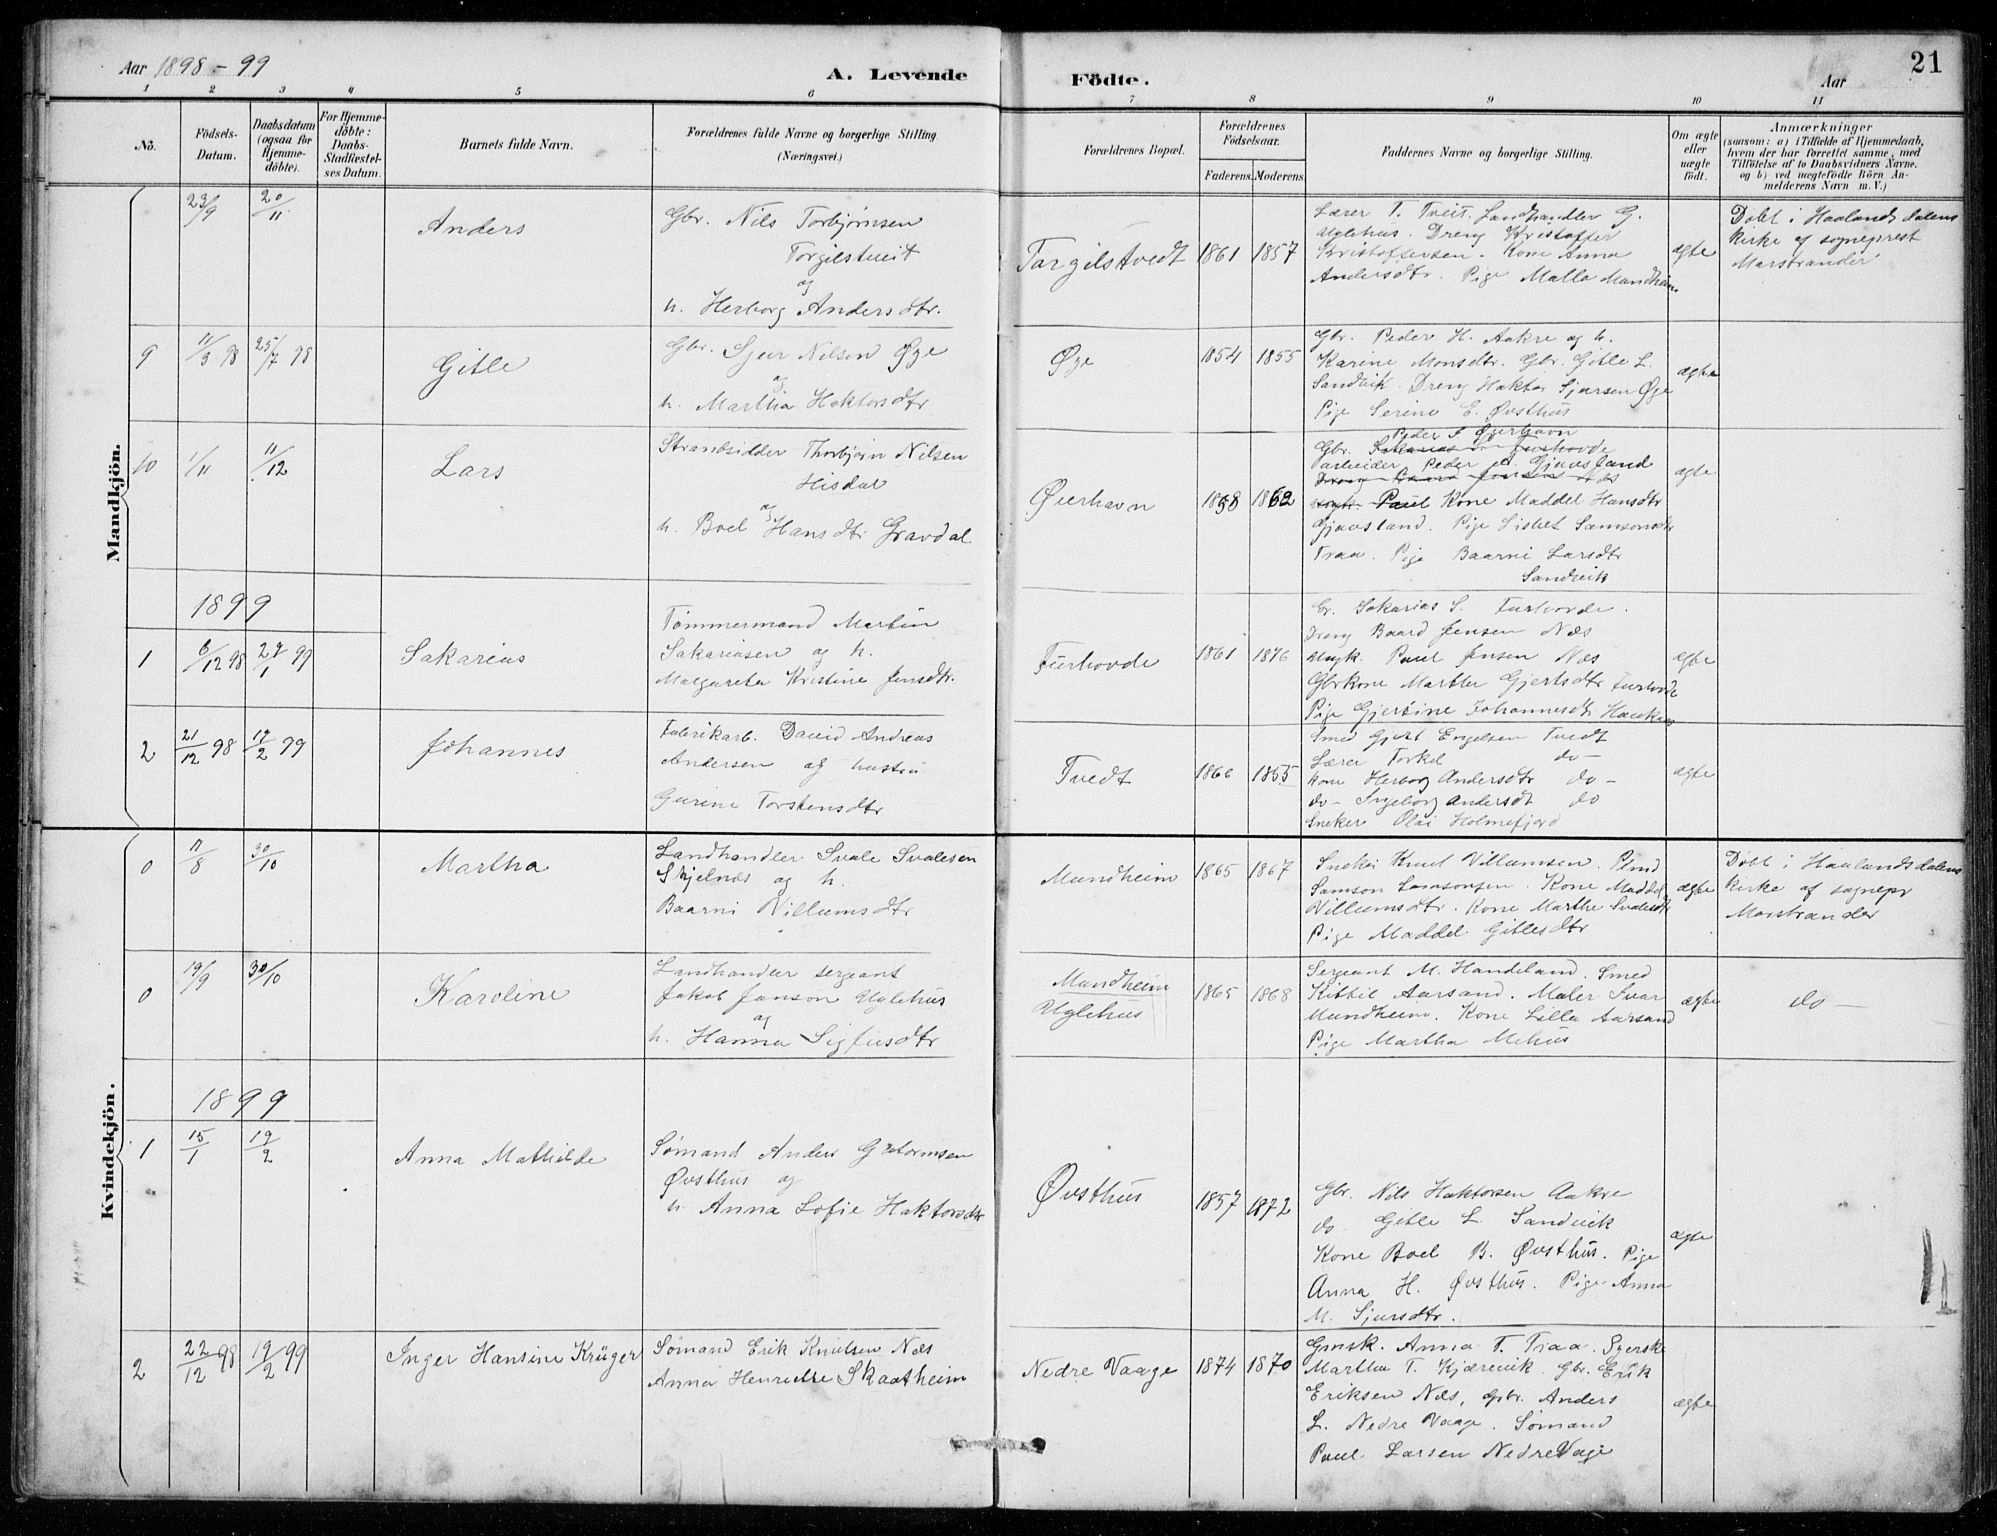 Aar 1898-99
A. Levende
Födte.
Aar
21
1 2 3 4 5 6 7 8 9 10 11
No.
Födsels-Datum.
Daabsdatum (ogsaa for Hjemmedöbte).
For Hjemmedöbte: Daabs-Stadfæstelses Datum.
Barnets fulde Navn.
Forældrenes fulde Navne og borgerlige Stilling (Næringsvei.)
Forældrenes Bopæl.
Forældrenes Födselsaar.
Faderens. Moderens.
Faddernes Navne og borgerlige Stilling.
Om ægte eller uægte födt.
Anmærkninger
(saasom: a) i Tilfælde af Hjemmedaab, hvem der har forrettet samme, med Tilföielse af to Daabsvidners Navne. og b) ved uægtefödte Börn Anmelderens Navn m. V.)
Mandkjön.
23/9
20/11
Anders
Gbr. Nils Torbjørnsen
Torgilstveit
og
h. Herborg Andersdtr.
Torgilstvedt
1861
1857
Lærer T. Tveit. Landhandler G.
Uglehus. Dreng Kristoffer
Kristoffersen. Kone Anna
Andersdtr. Pige Malla Mundheim
ægte
Døbt i Haalandsdalens
kirke af sogneprest
Marstrander
9
11/3 98
25/7 98
Gitle
Gbr. Sjur Nilsen Øye
og
h. Martha Haktorsdtr
Øye
1854
1855
Gbr. Peder H. Aakre og h.
Karine Monsdtr. Gbr. Gitle L.
Sandvik. Dreng Haktor Sjursen Øye
Pige Serine E. Øvsthus
ægte
10
1/11
11/12
Lars
Strandsidder Thorbjørn Nilsen
Hisdal
og
h. Boel Hansdtr Gravdal
Øierhavn
1858
1862
Peder Øyerhavn
Gbr. Sakarias S. Furhovde
arbeider Peder Gjøvsland
Dreng Baard Jensen Næs
ungk. Paul Kone Maddel Hansdtr
Gjøvsland. Pige Lisbet Samsonsdtr
Traa. Pige Baarni Larsdtr
Sandvik
ægte
1899
1
6/12 98
29/1 99
Sakarias
Tømmermand Martin
Sakariasen og h.
Margareta Kristine Jensdtr.
Furhovde
1861
1876
Gr. Sakarias S. Furhovde.
Dreng Baard Jensen Næs
Ungk. Paul Jensen Næs
Gbrkone Marthe Gjertsdtr Furhovde
Pige Gjertine Johannesdtr
ægte
2
21/12 98
19/2 99
Johannes
Fabrikarb. David Andreas
Andersen og hustru
Gurine Torstensdtr
Tvedt
1866
1855
Smed Gjert Engelsen Tvedt
Lærer Torkel do-
Kone Herborg Andersdtr do-
do- Ingeborg Andersdt do
Sneker Olai Holmefjord
ægte
Kvindekjön.
0
17/8
30/10
Martha
Landhandler Svale Svalesen
Skjelnæs og h.
Baarni Villumsdtr
Mundheim
1865
1867
Sneker Knut Villumsen.
Samson Samsonsen. Kone Maddel
Villumsdtr. Kone Marthe Svalesdtr
Pige Maddel Gitlesdtr
ægte
Døbt i Haalandsdalens
kirke af sognepr
Marstrander
0
19/9
30/10
Karoline
Landhandler sergeant
Jakob Janson Uglehus
og
h. Hanna Sigfusdtr
Mundheim
Uglehus
1865
1868
Sergeant M. Handeland. Smed
Kittil Aarsand. Maler Ivar
Mundheim. Kone Lilla Aarsand
Pige Martha Mehus
ægte
do-
1899
1
15/1
19/2
Anna Mathilde
Sømand Anders Guttormsen
Øvsthus og
h. Anna Sofie Haktorsdtr
Øvsthus
1857
1872
Gbr. Nils Haktorsen Aakre
do Gitle L. Sandvik
Kone Boel B. Øvsthus. Pige
Anna H. Øvsthus. Pige Anna
M. Sjursdtr.
ægte
2
22/12 98
19/2 99
Inger Hansine Krüger
Sømand Erik Knutsen Næs
Anna Henriette Skaatheim
Nedre Vaage
1874
1870
Anna T. Traa.
Martha T. Kjærevik. Gbr. Erik
Eriksen Næs, Gbr. Anders
L. Nedre Vaage. Sømand
Paul Larsen Nedre Vage
ægte